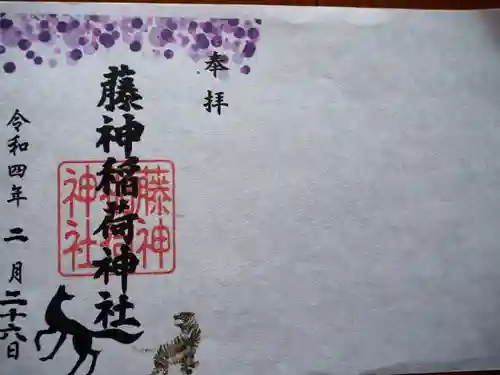 奉拝
藤神稲荷神社
藤神稲荷神社
令和四年二月二十六日